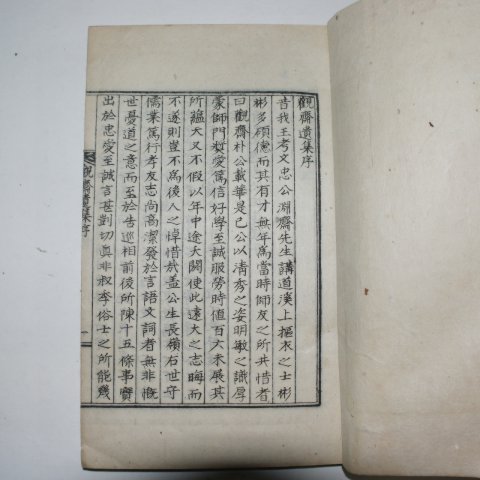 觀齋遺集序
昔我王考文忠公淵齋先生講道溪上摳衣之士彬
彬多碩德而其有才無年爲當時師友之所共惜者
曰觀齋朴公載華是已公以清秀之姿明敏之識早
蒙師門奬愛篤信好學至誠服勞時値百六未展其
所蘊天又不假以年中途夭閼使此遠大之志晦而
不遂則豈不爲後人之悼惜哉盖公生長嶺右世守
儒業篤行孝友志尚高潔發於言語文詞者無非慨
世憂道之意而至於告巡相前後所陳十五條事實
出於忠愛至誠言甚剴切眞非叔季俗士之所能幾
觀齋遺集序
一